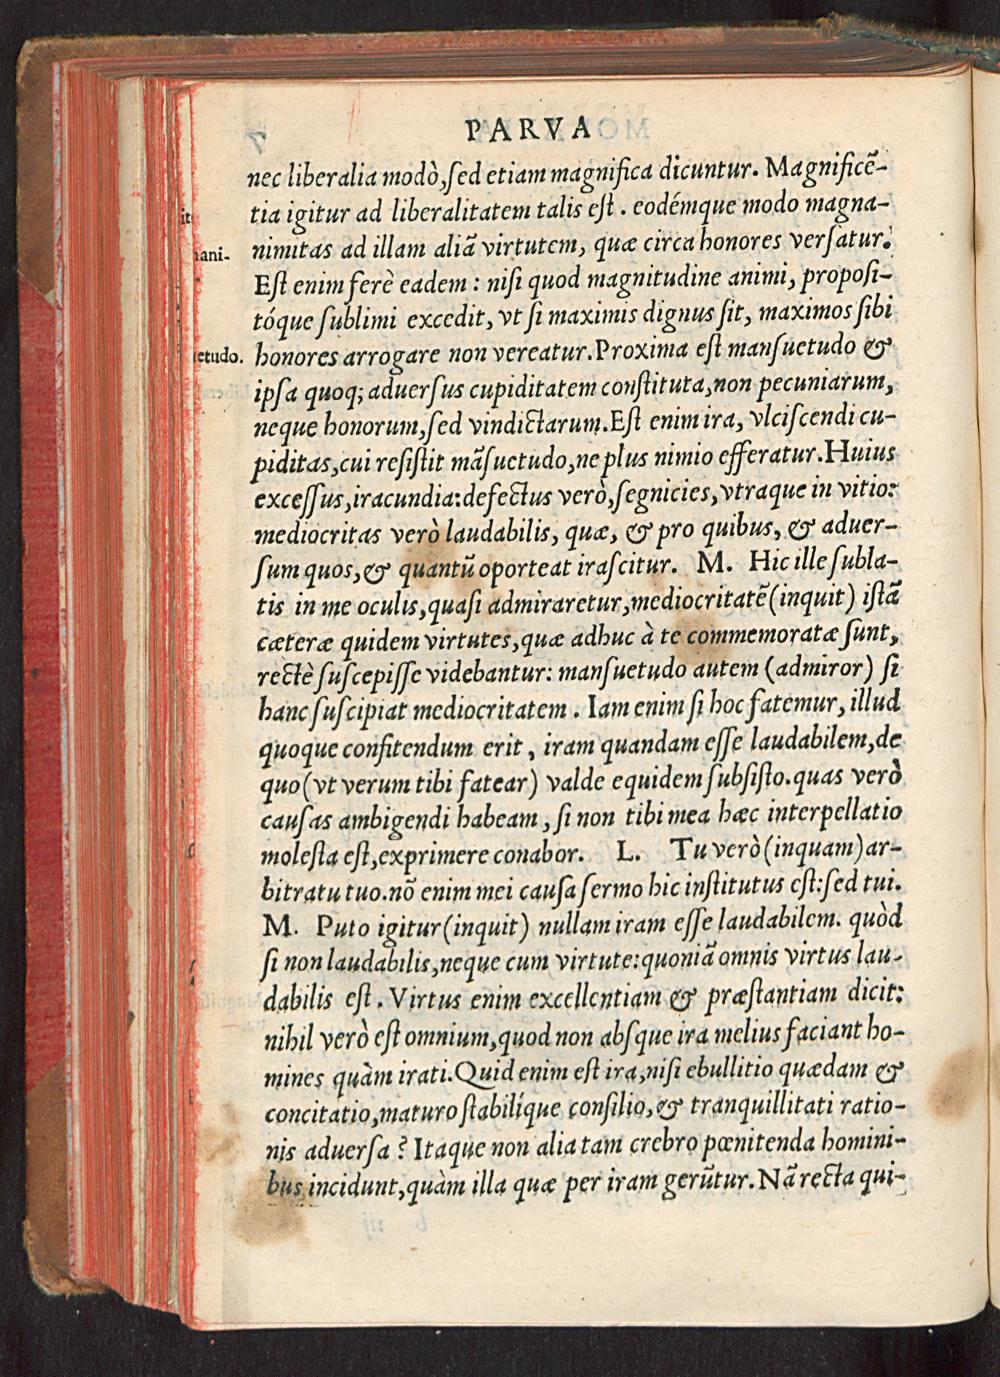 PARVA
nec liberalia modò, sed etiam magnifica dicuntur. Magnificẽ-
tia igitur ad liberalitatem talis est. eodémque modo magna-
nimitas ad illam aliã virtutem, quæ circa honores versatur.
Est enim ferè eadem: nisi quod magnitudine animi, proposi-
tóque sublimi excedit, vt si maximis dignus sit, maximos sibi
honores arrogare non vereatur. Proxima est mansuetudo &
ipsa quoq; aduersus cupiditatem constituta, non pecuniarum,
neque honorum, sed vindictarum. Est enim ira, vlciscendi cu-
piditas, cui resistit mãsuetudo, ne plus nimio efferatur. Huius
excessus, iracundia: defectus verò, segnicies, vtraque in vitio:
mediocritas verò laudabilis, quæ, & pro quibus, & aduer-
sum quos, & quantũ oporteat irascitur. M. Hic ille subla-
tis in me oculis, quasi admiraretur, mediocritatẽ (inquit) istã
cæteræ quidem virtutes, quæ adhuc à te commemoratæ sunt,
rectè suscepisse videbantur: mansuetudo autem (admiror) si
hanc suscipiat mediocritatem. Iam enim si hoc fatemur, illud
quoque confitendum erit, iram quandam esse laudabilem, de
quo (vt verum tibi fatear) valde equidem subsisto. quas verò
causas ambigendi habeam, si non tibi mea hæc interpellatio
molesta est, exprimere conabor. L. Tu verò (inquam) ar-
bitratu tuo. nõ enim mei causa sermo hic institutus est: sed tui.
M. Puto igitur (inquit) nullam iram esse laudabilem. quòd
si non laudabilis, neque cum virtute: quoniã omnis virtus lau-
dabilis est. Virtus enim excellentiam & præstantiam dicit:
nihil verò est omnium, quod non absque ira melius faciant ho-
mines quàm irati. Quid enim est ira, nisi ebullitio quædam &
concitatio, maturo stabilíque consilio, & tranquillitati ratio-
nis aduersa? Itaque non alia tam crebro pœnitenda homini-
bus incidunt, quàm illa quæ per iram gerũtur. Nã recta qui-
ani-
etudo.